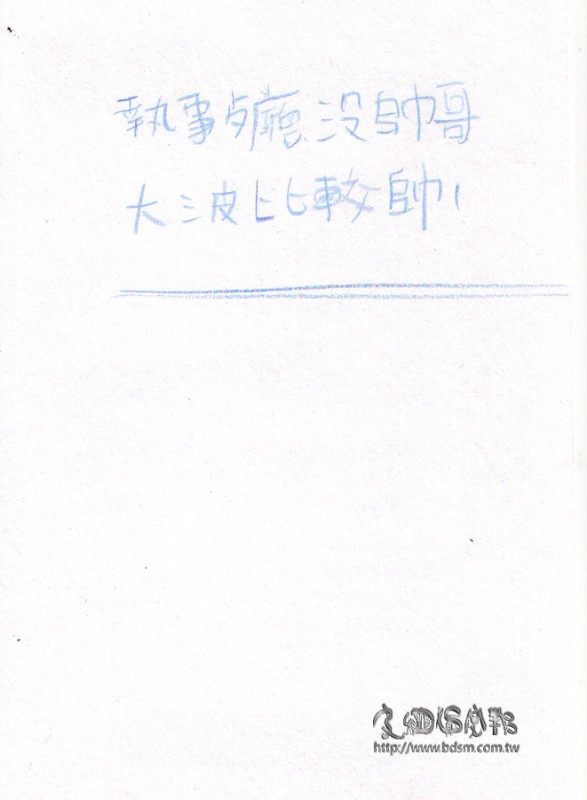 執事歺廳沒帥哥
大波比較帥!
http://www.bdsm.com.tw